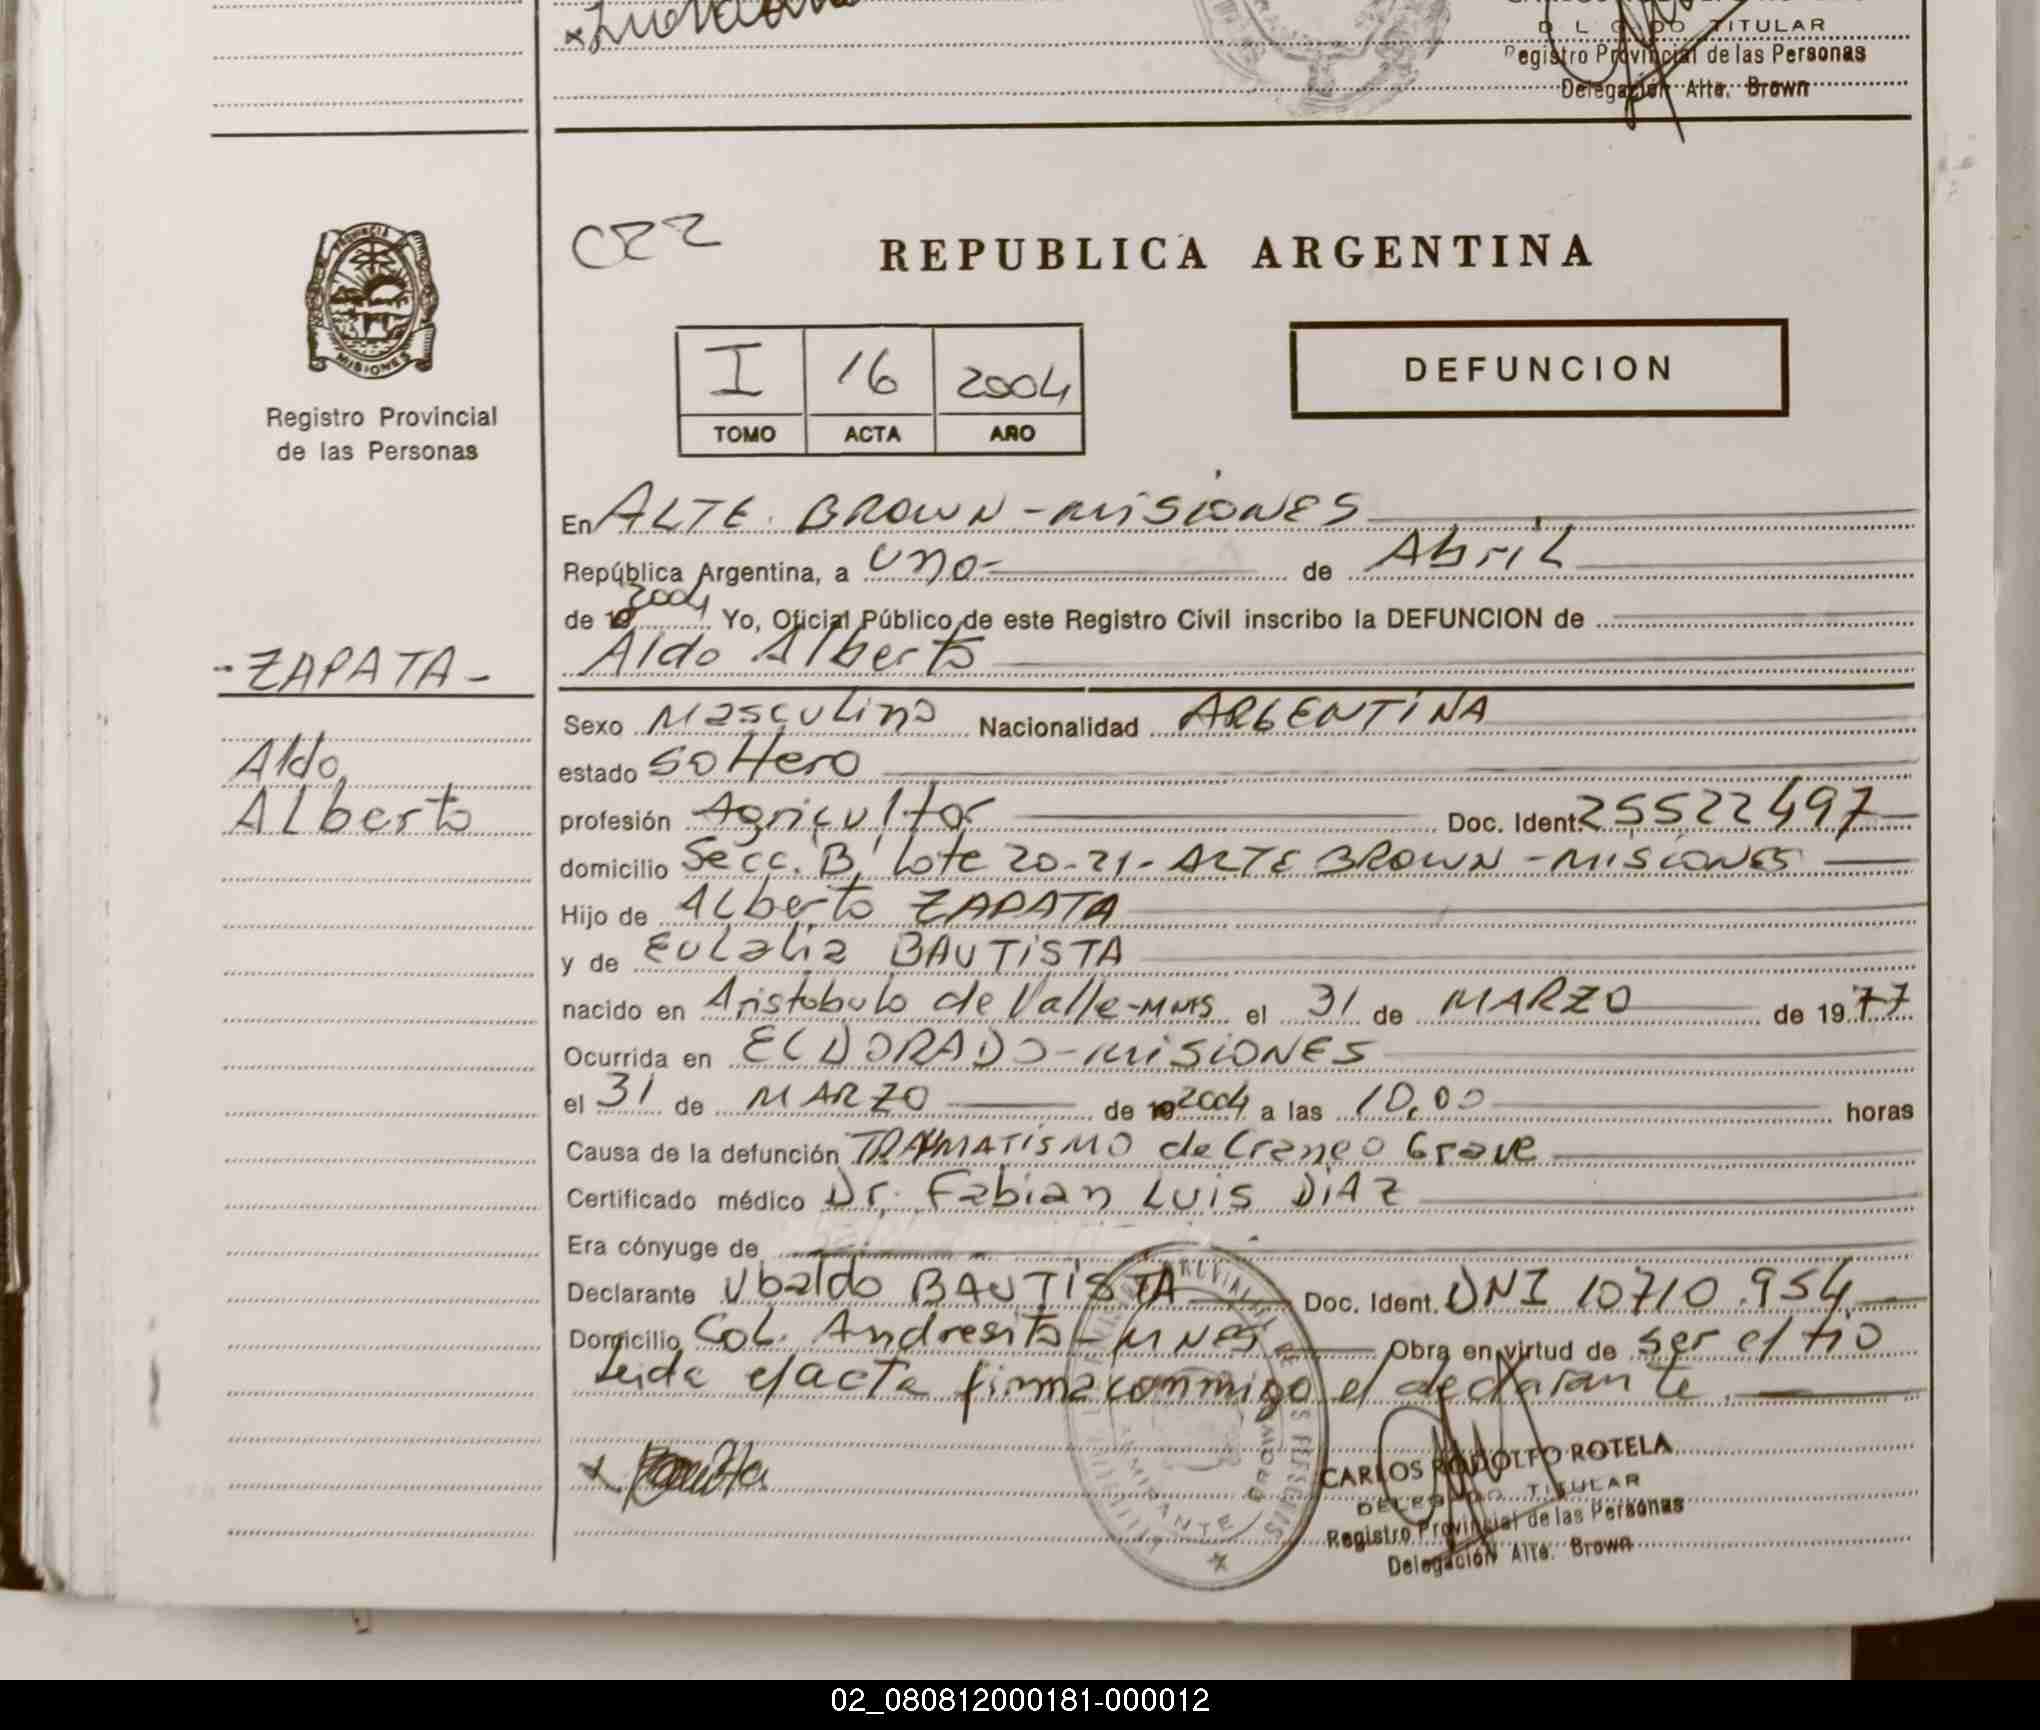 TITULAR
Registro Provincial de las Personas
Delegación Alte. Brown
PROVINCIA
MISIONES
Registro Provincial
de las Personas
REPUBLICA ARGENTINA
I 16 2004
TOMO ACTA AÑO
DEFUNCION
En ALTE. BROWN - MISIONES
República Argentina, a uno de Abril
de 19 2004 Yo, Oficial Público de este Registro Civil inscribo la DEFUNCION de
Aldo Alberto
- ZAPATA -
Aldo
Alberto
Sexo Masculino Nacionalidad ARGENTINA
estado soltero
profesión Agricultor Doc. Ident. 25522497
domicilio Secc. "B" Lote 20-21 - ALTE BROWN - MISIONES
Hijo de Alberto ZAPATA
y de Eulalia BAUTISTA
nacido en Aristobulo de Valle - Mnes el 31 de MARZO de 1977
Ocurrida en ELDORADO - MISIONES
el 31 de MARZO de 19 2004 a las 10,00 horas
Causa de la defunción TRAUMATISMO de Craneo Grave
Certificado médico Dr. Fabian LUIS DIAZ
Era cónyuge de
Declarante Ubaldo BAUTISTA Doc. Ident. DNI 10710.954
Domicilio Col. Andresito - MNES Obra en virtud de ser el tio
Leida el acta firma conmigo el declarante.
CARLOS RODOLFO ROTELA
DELEGADO TITULAR
Registro Provincial de las Personas
Delegación Alte. Brown
02_080812000181-000012